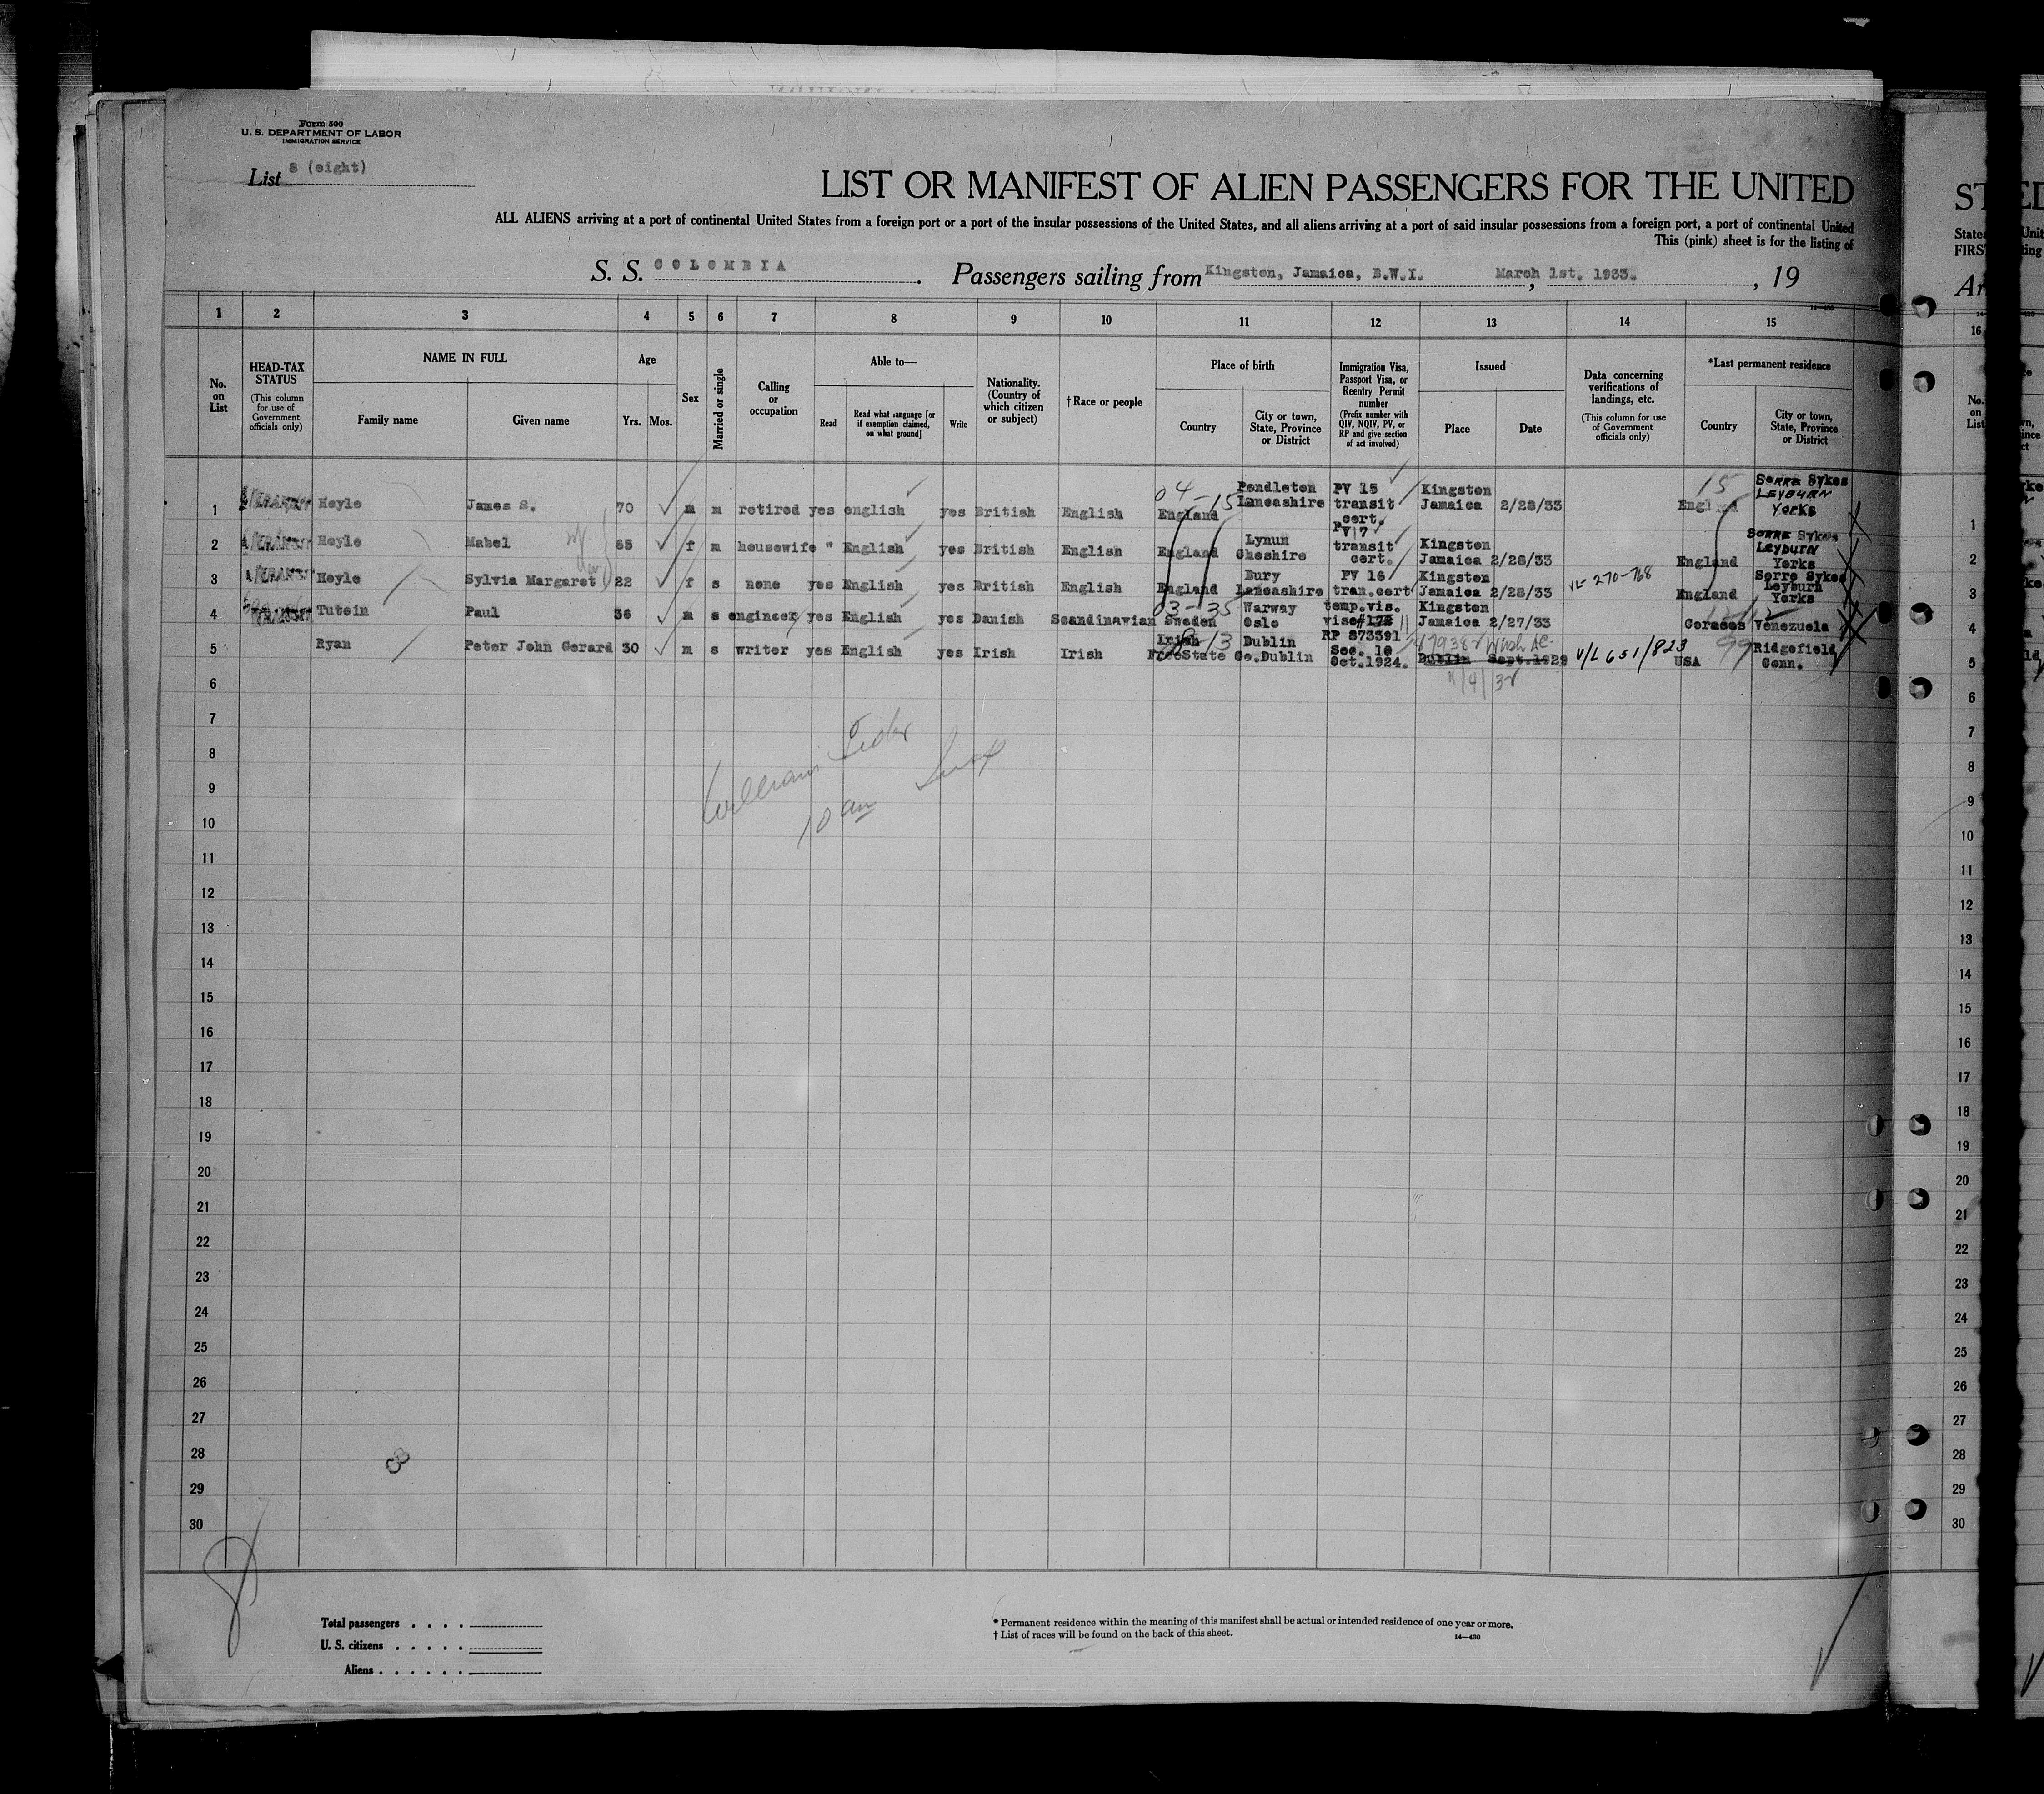 Form 500
U. S. DEPARTMENT OF LABOR
IMMIGRATION SERVICE
List 8 (eight)
LIST OR MANIFEST OF ALIEN PASSENGERS FOR THE UNITED
ALL ALIENS arriving at a port of continental United States from a foreign port or a port of the insular possessions of the United States, and all aliens arriving at a port of said insular possessions from a foreign port, a port of continental United
This (pink) sheet is for the listing of
S. S. COLOMBIA. Passengers sailing from Kingston, Jamaica, B.W.I., March 1st. 1933., 19
1 2 3 4 5 6 7 8 9 10 11 12 13 14 15
No. on List
HEAD-TAX STATUS
(This column for use of Government officials only)
NAME IN FULL
Family name
Given name
Age
Yrs. Mos.
Sex
Married or single
Calling or occupation
Able to—
Read
Read what language [or if exemption claimed, on what ground]
Write
Nationality. (Country of which citizen or subject)
†Race or people
Place of birth
Country
City or town, State, Province or District
Immigration Visa, Passport Visa, or Reentry Permit number
(Prefix number with QIV, NQIV, PV, or RP and give section of act involved)
Issued
Place
Date
Data concerning verifications of landings, etc.
(This column for use of Government officials only)
*Last permanent residence
Country
City or town, State, Province or District
1 TRANSIT Hoyle James S. 70 m m retired yes english yes British English 04-15 England Pendleton Lancashire PV 15 transit cert. Kingston Jamaica 2/28/33 15 England Serre Sykes LEYBURN YORKS
2 TRANSIT Hoyle Mabel 65 f m housewife " English yes British English England Lynun Cheshire PV 17 transit cert. Kingston Jamaica 2/28/33 England Serre Sykes LEYBURN Yorks
3 TRANSIT Hoyle Sylvia Margaret 22 f s none yes English yes British English England Bury Lancashire PV 16 tran.cert Kingston Jamaica 2/28/33 VL 270-768 England Serre Sykes Leyburn Yorks
4 TRANSIT Tutein Paul 36 m s engineer yes English yes Danish Scandinavian 03-35 Sweden Warway Oslo temp.vis. vise# Kingston Jamaica 2/27/33 Corases Venezuela
5 Ryan Peter John Gerard 30 m s writer yes English yes Irish Irish Irish FreeState Dublin Co.Dublin RP 873391 Sec. 10 Oct.1924. Dublin Sept.1929 V/L 651/823 99 USA Ridgefield Conn.
6
7
8
9
10
William
10 am
11
12
13
14
15
16
17
18
19
20
21
22
23
24
25
26
27
28
29
30
Total passengers
U. S. citizens
Aliens
* Permanent residence within the meaning of this manifest shall be actual or intended residence of one year or more.
† List of races will be found on the back of this sheet.
14—430